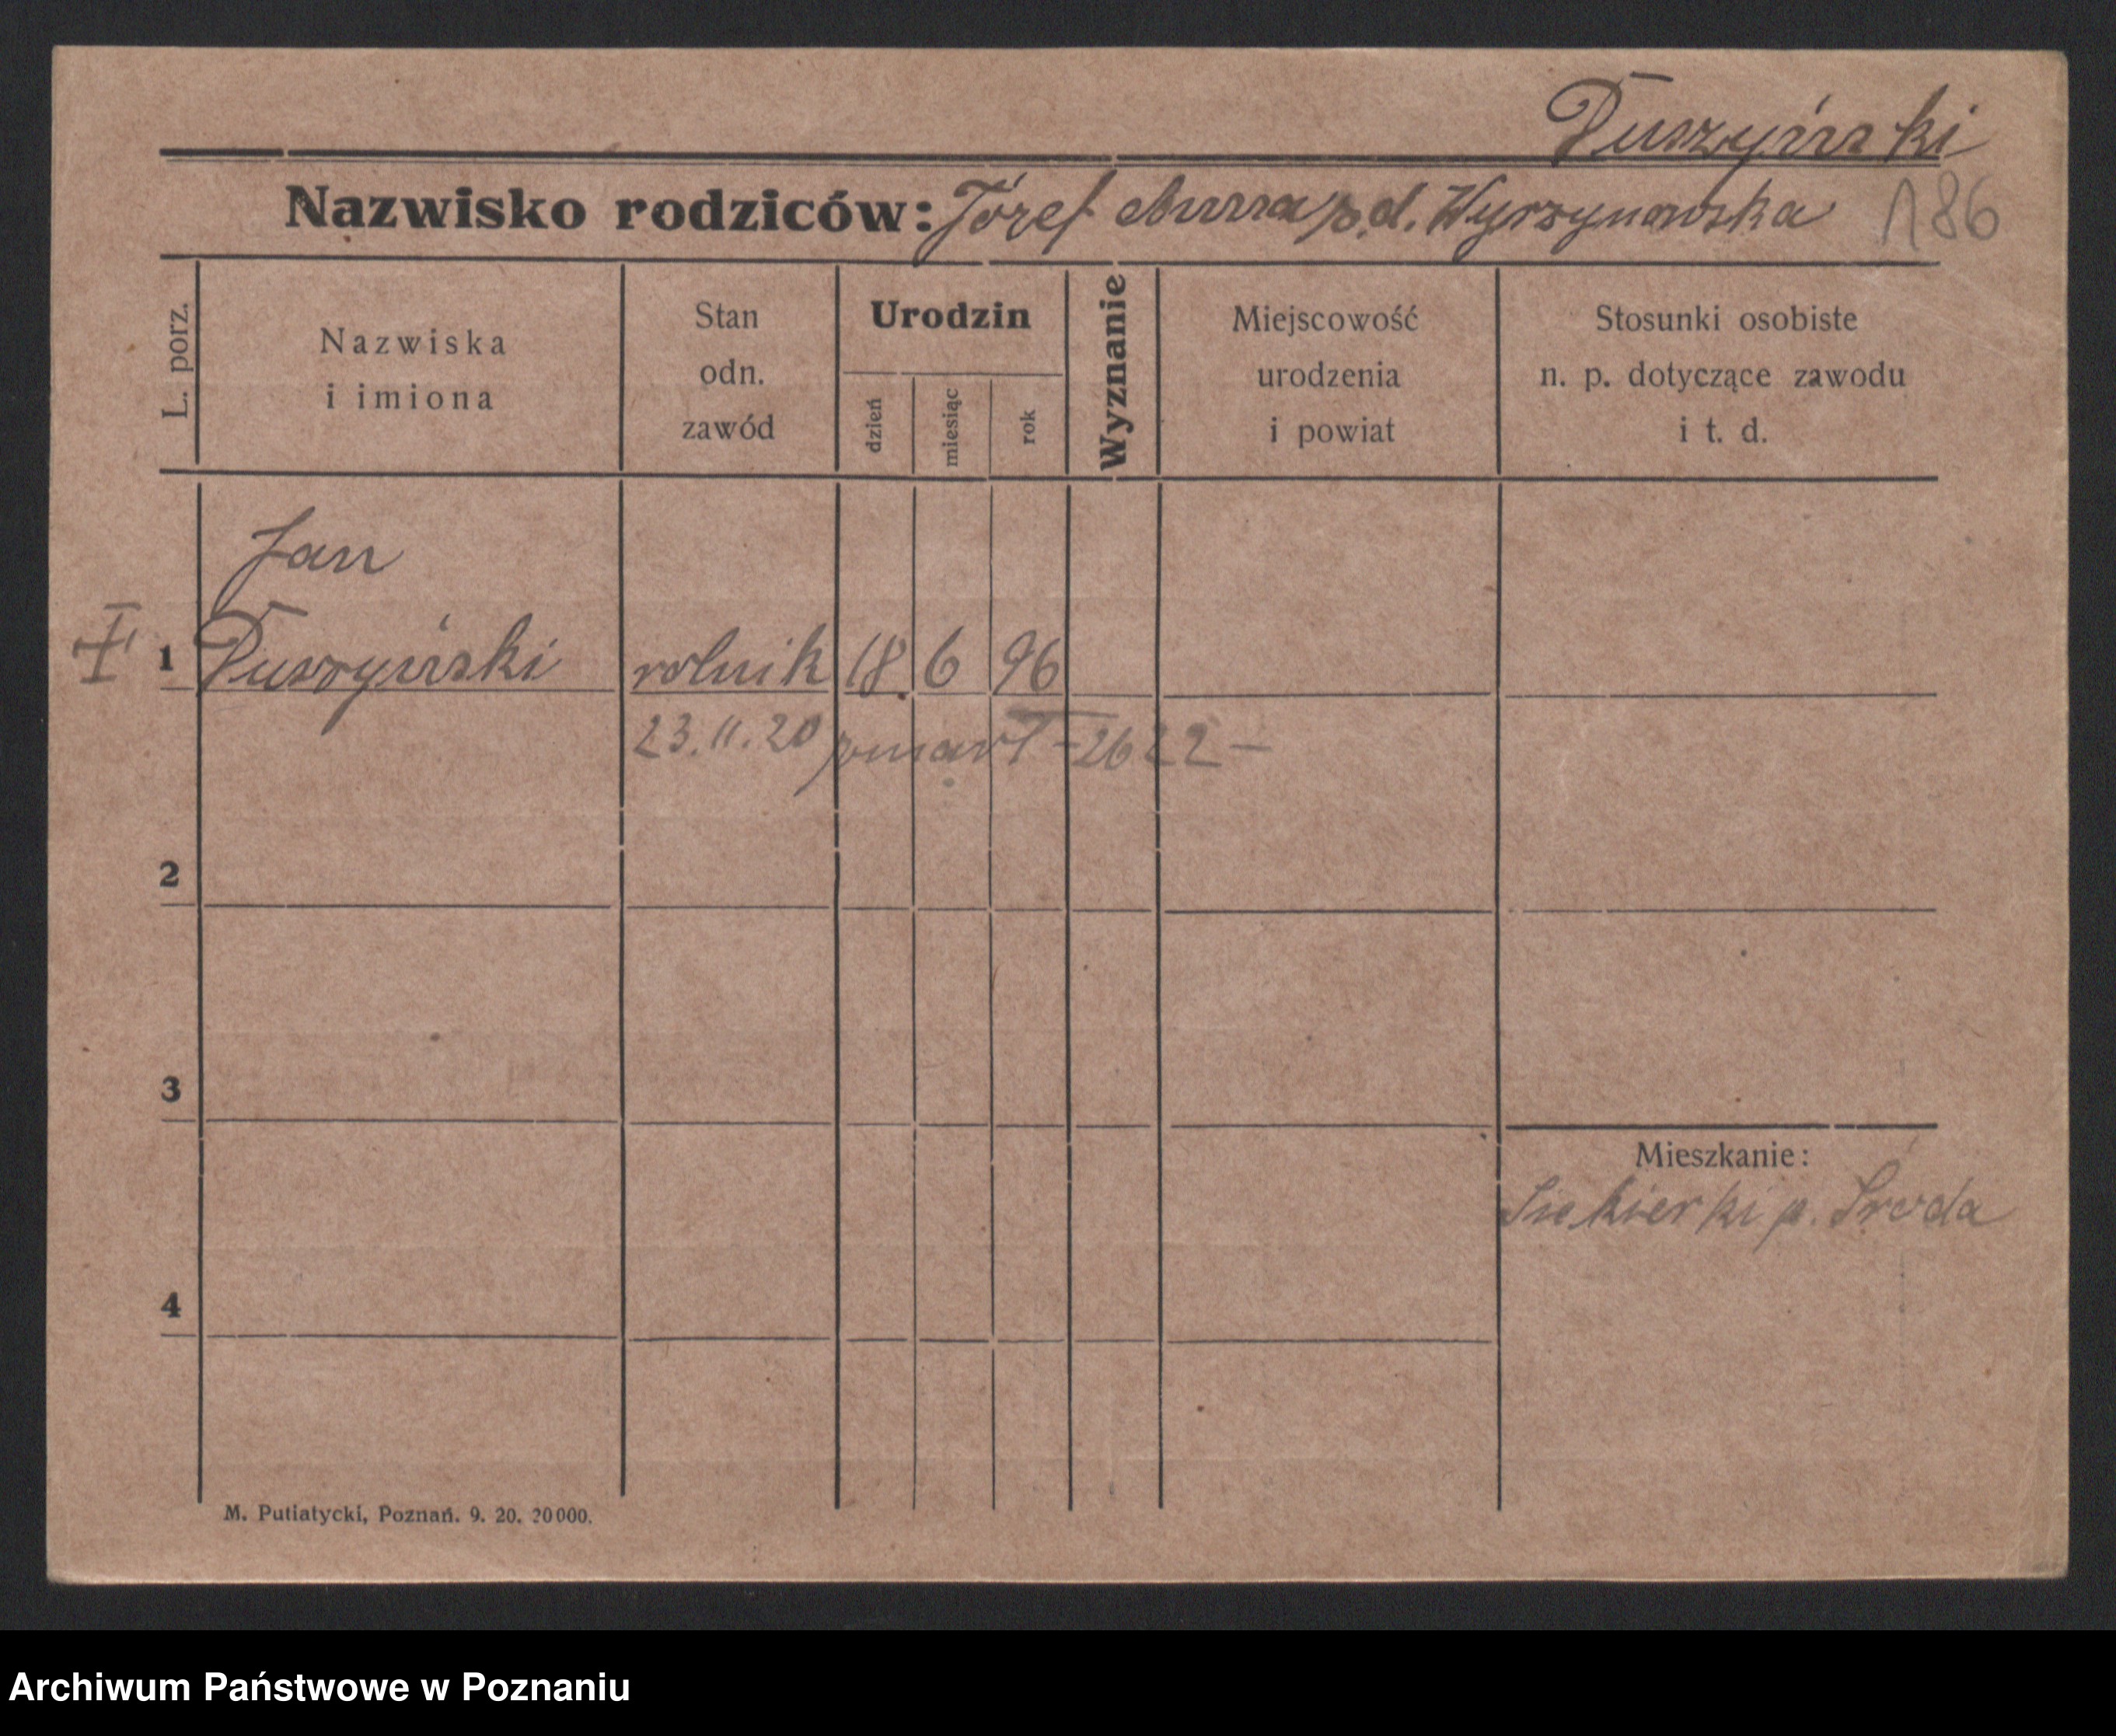 Duszyński
Nazwisko rodziców: Józef Anna z d. Wyrzynowska 186
L. porz.
Nazwiska
i imiona
Stan
odn.
zawód
Urodzin
dzień
miesiąc
rok
Wyznanie
Miejscowość
urodzenia
i powiat
Stosunki osobiste
n. p. dotyczące zawodu
i t. d.
Jan
1 Duszyński rolnik 18. 6 96
23.11.20 zmarł - 26 22 -
2
3
Mieszkanie:
Siekierki p. Środa
4
M. Putiatycki, Poznań. 9. 20. 20000.
Archiwum Państwowe w Poznaniu